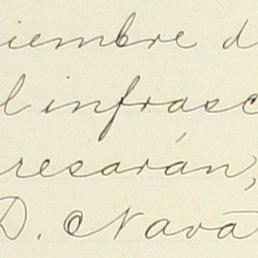 iembre d
l infrasc
resarán,
D. Nava